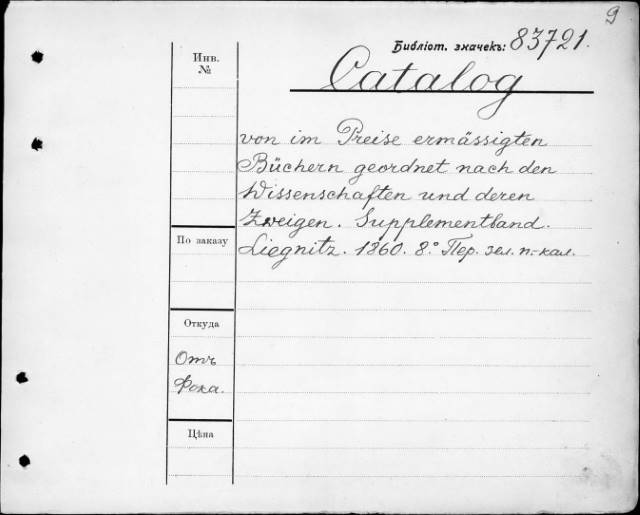 9
Библіот. значекъ: 83721.
Инв. №
Catalog
von im Preise ermässigten
Büchern geordnet nach den
Wissenschaften und deren
Zweigen. Supplementband.
По заказу
Liegnitz. 1860. 8.° Пер. зел. п.-кал.
Откуда
Отъ
Фока.
Цѣна